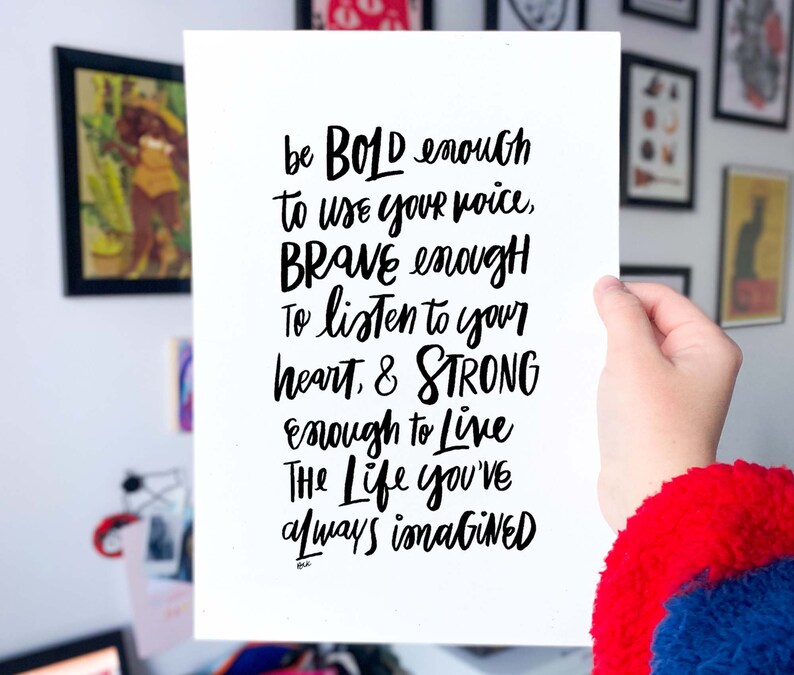 be BOLD enough
to use your voice,
BRAVE enough
To listen to your
heart, & STRONG
enough to Live
THe Life you've
always imaGiNED